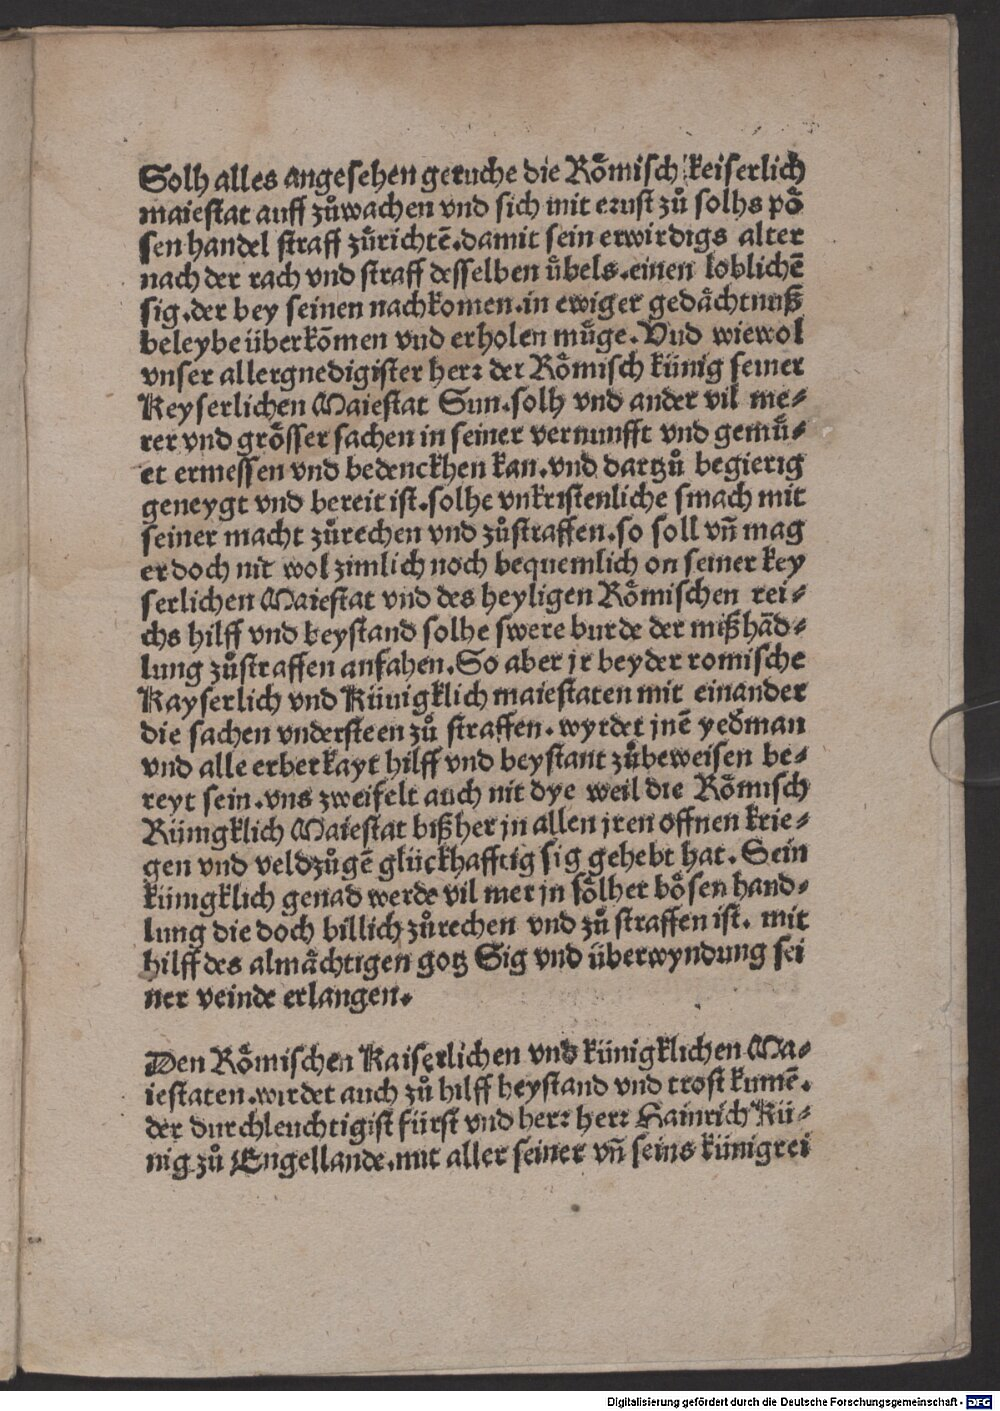 Solh alles angesehen geruche die Roͤmisch keiserlich
maiestat auff zuͦwachen vnd sich mit ernst zuͦ solhs poͤ
sen handel straff zuͦrichtē. damit sein erwirdigs alter
nach der rach vnd straff desselben uͤbels. einen loblichē
sig. der bey seinen nachkomen. in ewiger gedaͤchtnuß
beleybe überkōmen vnd erholen muͤge. Vnd wiewol
vnser allergnedigister herꝛ der Roͤmisch künig seiner
Keyserlichen Maiestat Sun. solh vnd ander vil me⸗
rer vnd groͤsser sachen in seiner vernunfft vnd gemuͤ⸗
et ermessen vnd bedenckhen kan. vnd dartzuͦ begierig
geneygt vnd bereit ist. solhe vnkristenliche smach mit
seiner macht zuͦrechen vnd zuͦstraffen. so soll vn̄ mag
er doch nit wol zimlich noch bequemlich on seiner key
serlichen Maiestat vnd des heyligen Roͤmischen rei⸗
chs hilff vnd beystand solhe swere burde der mißhād⸗
lung zuͦstraffen anfahen. So aber jr beyder romische
Kayserlich vnd Künigklich maiestaten mit einander
die sachen vndersteen zuͦ straffen. wyrdet jnē yeđman
vnd alle erberkayt hilff vnd beystant zuͦbeweisen be⸗
reyt sein. vns zweifelt auch nit dye weil die Roͤmisch
Künigklich Maiestat bißher jn allen jren offnen krie⸗
gen vnd veldzuͦgē glückhafftig sig gehebt hat. Sein
künigklich genad werde vil mer jn soͤlher boͤsen hand⸗
lung die doch billich zuͦrechen vnd zuͦ straffen ist. mit
hilff des almaͤchtigen gotz Sig vnd überwyndung sei
ner veinde erlangen.
Den Roͤmischen Kaiserlichen vnd künigklichen Ma⸗
iestaten. wirdet auch zuͦ hilff beystand vnd trost kumē.
der durchleuchtigist fürst vnd herꝛ herꝛ Hainrich Kü⸗
nig zuͦ Engellande. mit aller seiner vn̄ seins künigrei
Digitalisierung gefördert durch die Deutsche Forschungsgemeinschaft - DFG